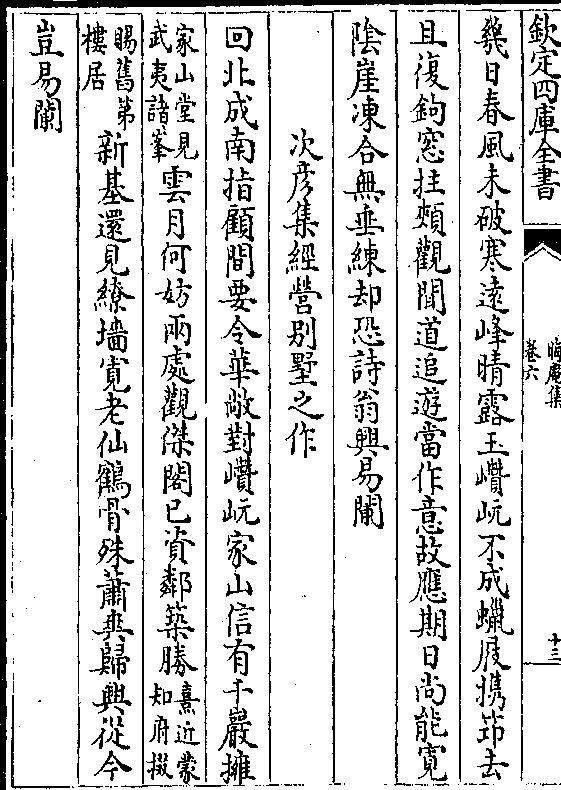 欽定四庫全書
晦庵集
卷六
十三
幾日春風未破寒遠峰晴露玉巑岏不成蠟屐携笻去
且復鉤窓拄頰觀聞道追遊當作意故應期日尚能寛
陰崖凍合無垂練却恐詩翁興易闌
次彥集經營别墅之作
回北成南指顧間要令華敞對巑岏家山信有千巖擁
家山堂見武夷諸峯雲月何妨兩處觀傑閣已資鄰築勝熹近蒙知府掇
賜舊第樓居新基還見繚墻寛老仙鶴骨殊蕭爽歸興從今
豈易闌